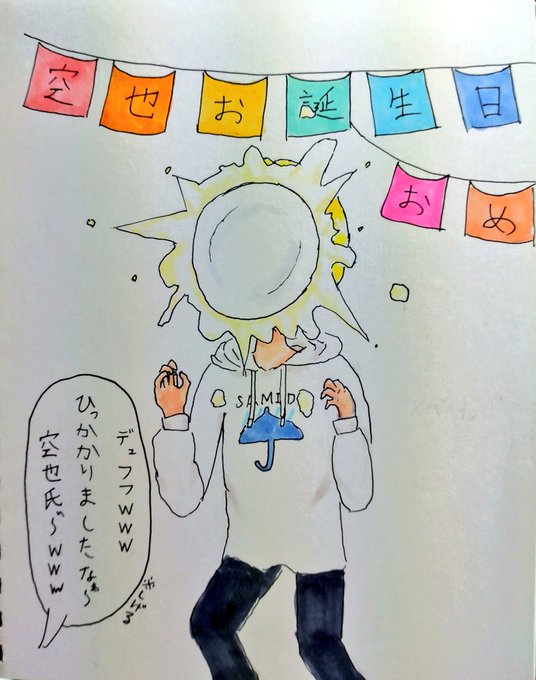 空也お誕生日
おめ
SAMID
デュフフwww
ひっかかりましたなぁ〜
空也氏〜www